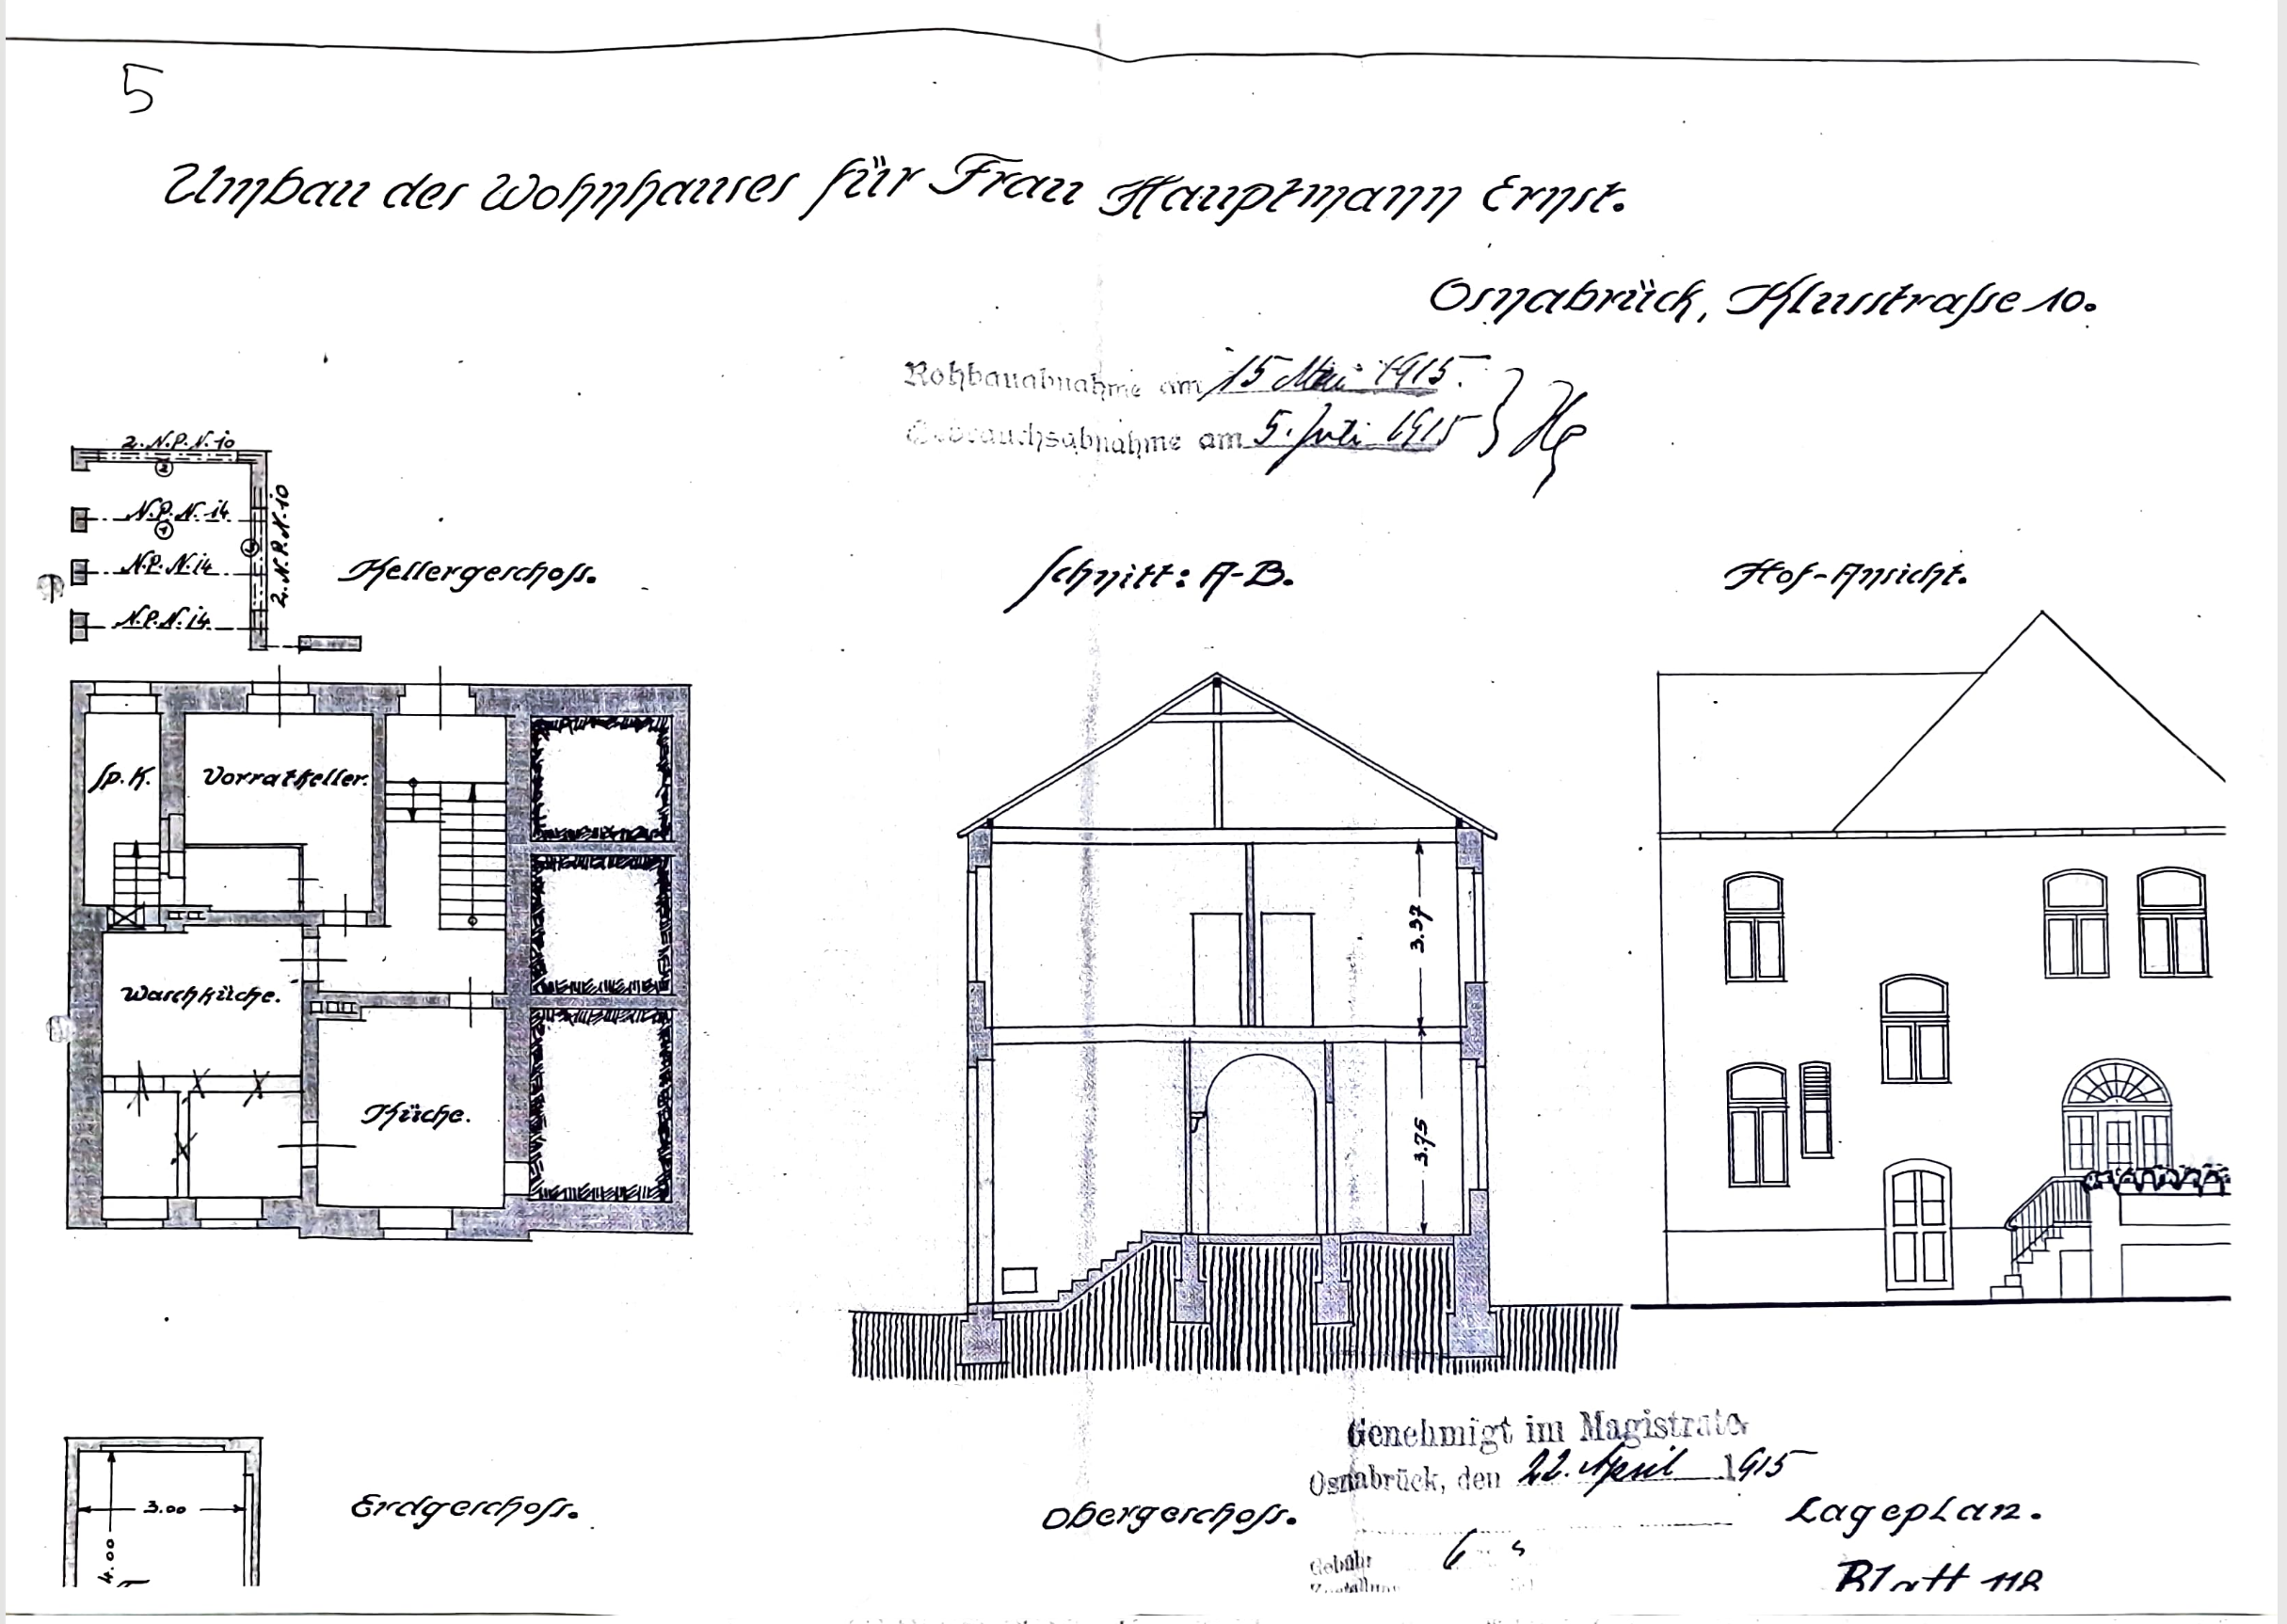 5
Umbau des Wohnhauses für Frau Hauptmann Ernst.
Osnabrück, Klusstraße 10.
Rohbauabnahme am 15 Mai 1915.
Gebrauchsabnahme am 5. Juli 1915
2. N.P.N. 10
2
N.P.N. 14
1
N.P.N. 14
N.P.N. 14
2. N.P.N. 10
Kellergeschoss.
Schnitt: A-B.
Hof-Ansicht.
Sp.K.
Vorratkeller.
Waschküche.
Küche.
3.37
3.75
Genehmigt im Magistrate
Osnabrück, den 22. April 1915
3.00
4.00
Erdgeschoss.
Obergeschoss.
Lageplan.
Gebühr 6
Blatt 118